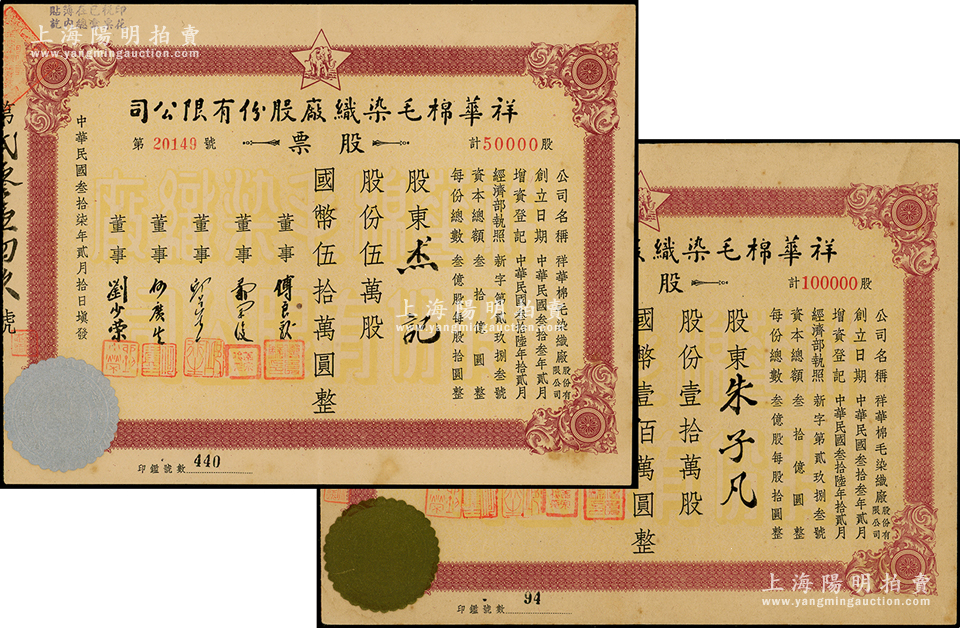 上海陽明拍賣
www.yangmingauction.com
祥華棉毛染織廠股份有限公司
計50000股
股票
第 20149 號
公司名稱 祥華棉毛染織廠股份有限公司
創立日期 中華民國叁拾叁年貳月
增資登記 中華民國叁拾陸年拾貳月
經濟部執照 新字第貳玖捌叁號
資本總額 叁拾億圓整
每份總數 叁億股每股拾圓整
股東 杰記
股份伍萬股
國幣伍拾萬圓整
董事 傅良駿
董事
董事
董事 何廣生
董事 劉少榮
中華民國叁拾柒年貳月拾日填發
印鑑號數 440
上海陽明拍賣
www.yangmingauction.com
祥華棉毛染織
計100000股
股
公司名稱 祥華棉毛染織廠股份有限公司
創立日期 中華民國叁拾叁年貳月
增資登記 中華民國叁拾陸年拾貳月
經濟部執照 新字第貳玖捌叁號
資本總額 叁拾億圓整
每份總數 叁億股每股拾圓整
股東 朱子凡
股份壹拾萬股
國幣壹佰萬圓整
印鑑號數 94
上海陽明拍賣
www.yangmingauction.com